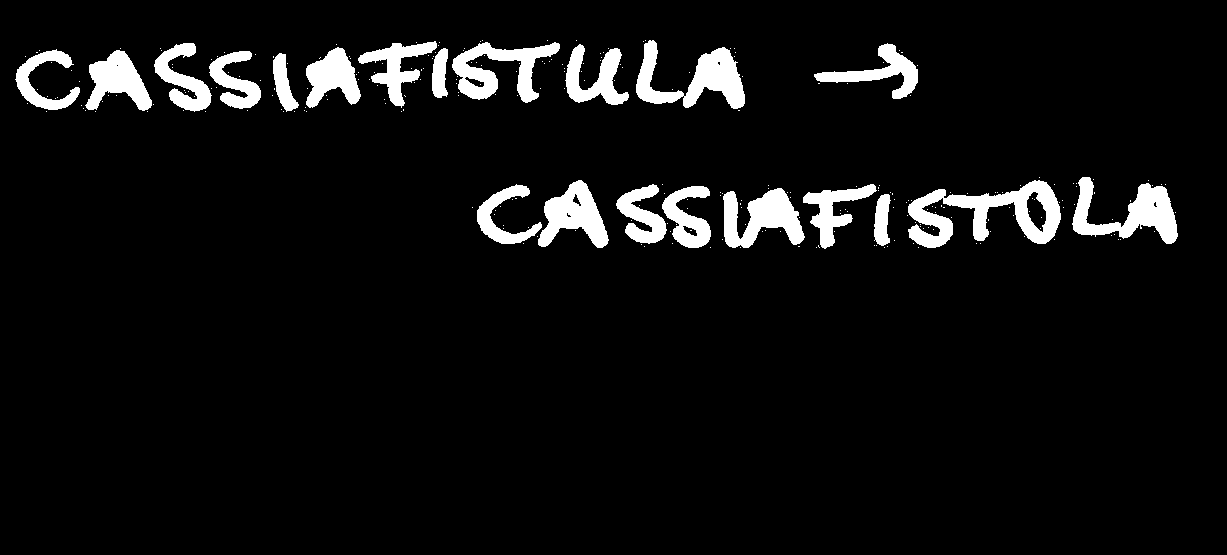 CASSIAFISTULA →
CASSIAFISTOLA